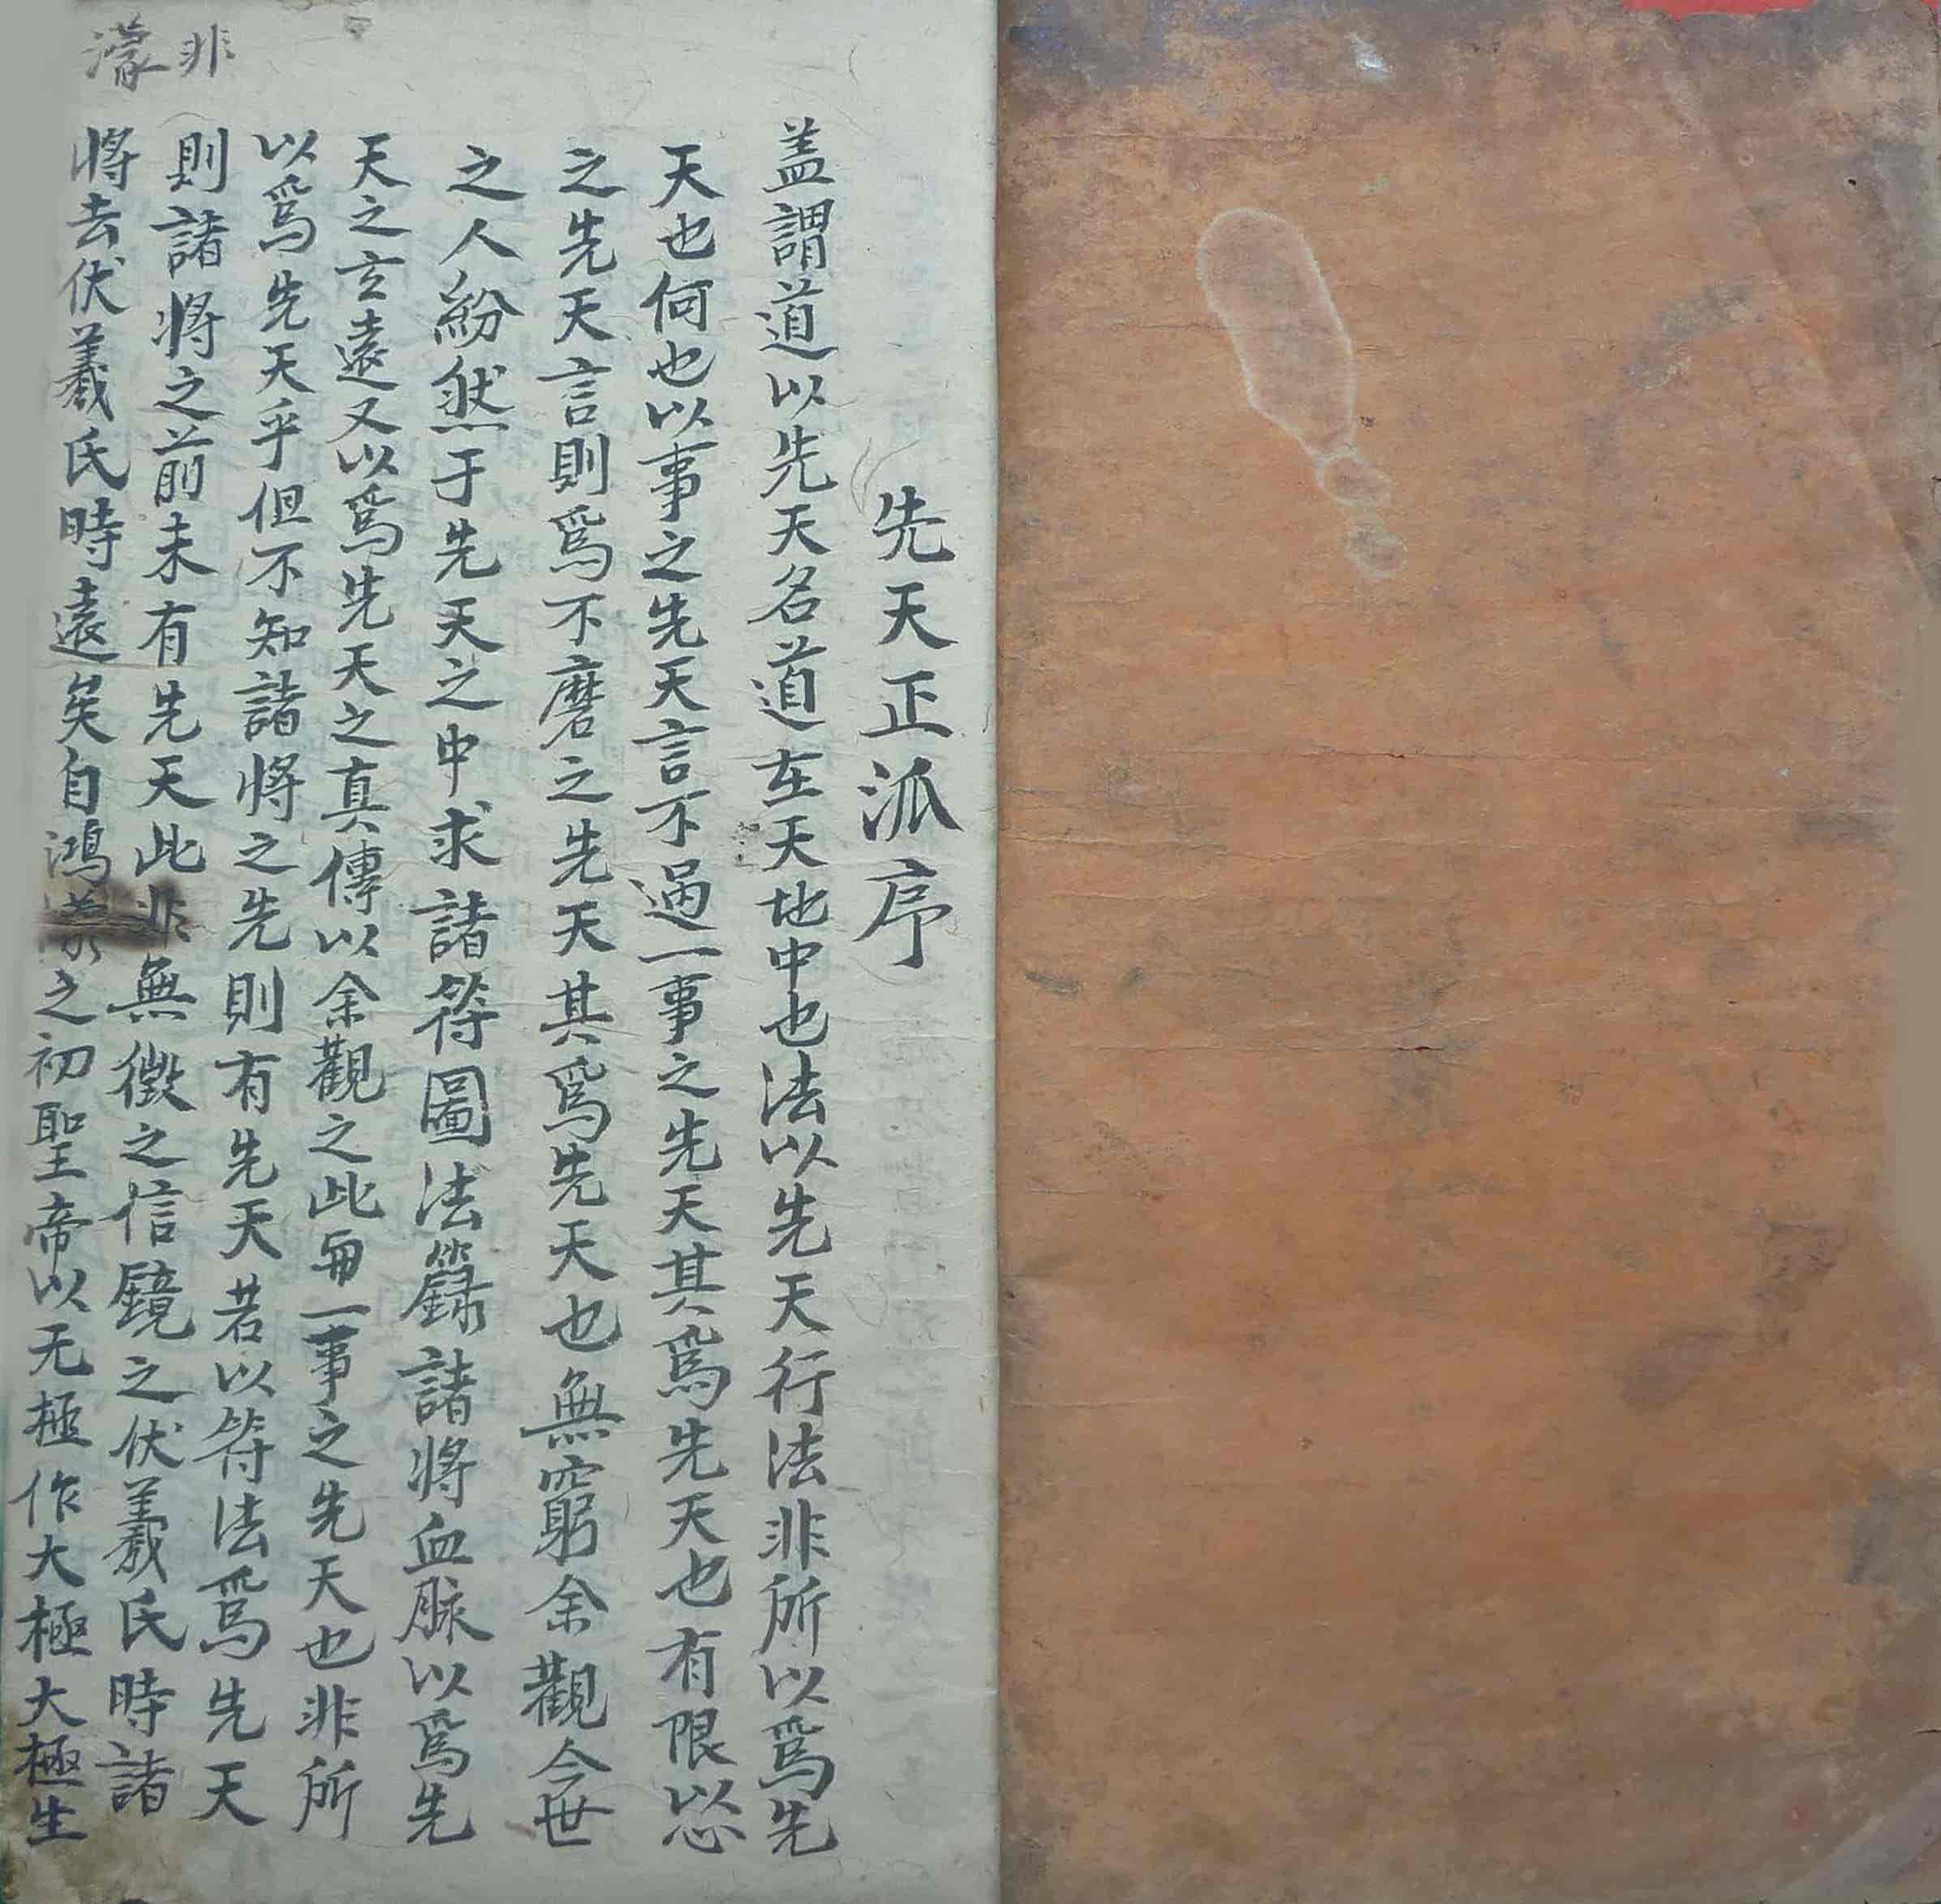 先天正派序
盖謂道以先天名道在天地中也法以先天行法非所以爲先
天也何也以事之先天言不過一事之先天其爲先天也有限以心
之先天言則爲不磨之先天其爲先天也無窮余觀今世
之人紛然于先天之中求諸符圖法籙諸將血脉以爲先
天之玄遠又以爲先天之真傳以余觀之此毋一事之先天也非所
以爲先天乎但不知諸將之先則有先天若以符法爲先天
則諸將之前未有先天此非無徵之信鏡之伏羲氏時諸
將去伏羲氏時遠矣自鴻濛之初聖帝以无極作大極大極生
非
濛